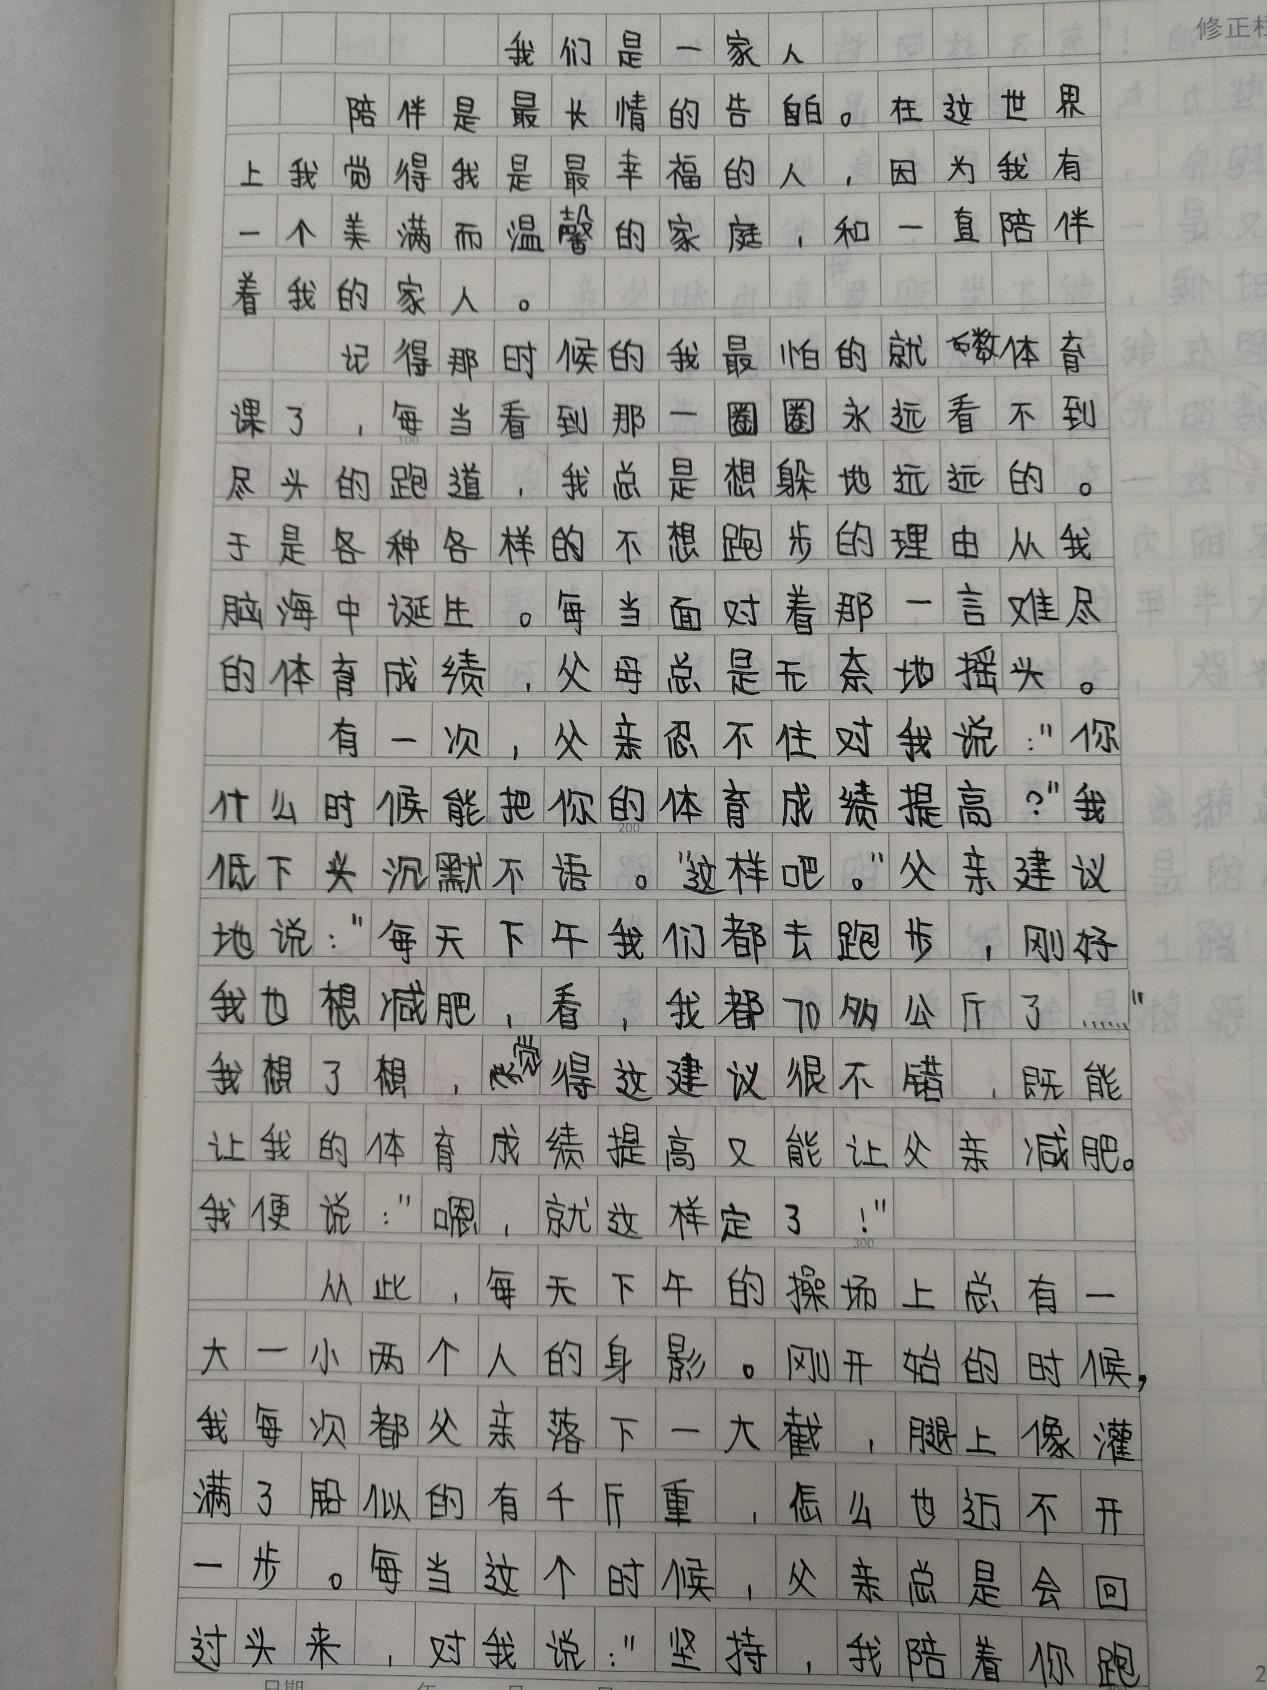 修正栏
我们是一家人
陪伴是最长情的告白。在这世界
上我觉得我是最幸福的人，因为我有
一个美满而温馨的家庭，和一直陪伴
着我的家人。
记得那时候的我最怕的就数体育
课了，每当看到那一圈圈永远看不到
尽头的跑道，我总是想躲地远远的。
于是各种各样的不想跑步的理由从我
脑海中诞生。每当面对着那一言难尽
的体育成绩，父母总是无奈地摇头。
有一次，父亲忍不住对我说："你
什么时候能把你的体育成绩提高？"我
低下头沉默不语。"这样吧。"父亲建议
地说："每天下午我们都去跑步，刚好
我也想减肥，看，我都70多公斤了……"
我想了想，觉得这建议很不错，既能
让我的体育成绩提高又能让父亲减肥。
我便说："嗯，就这样定了！"
从此，每天下午的操场上总有一
大一小两个人的身影。刚开始的时候，
我每次都父亲落下一大截，腿上像灌
满了铅似的有千斤重，怎么也迈不开
一步。每当这个时候，父亲总是会回
过头来，对我说："坚持，我陪着你跑